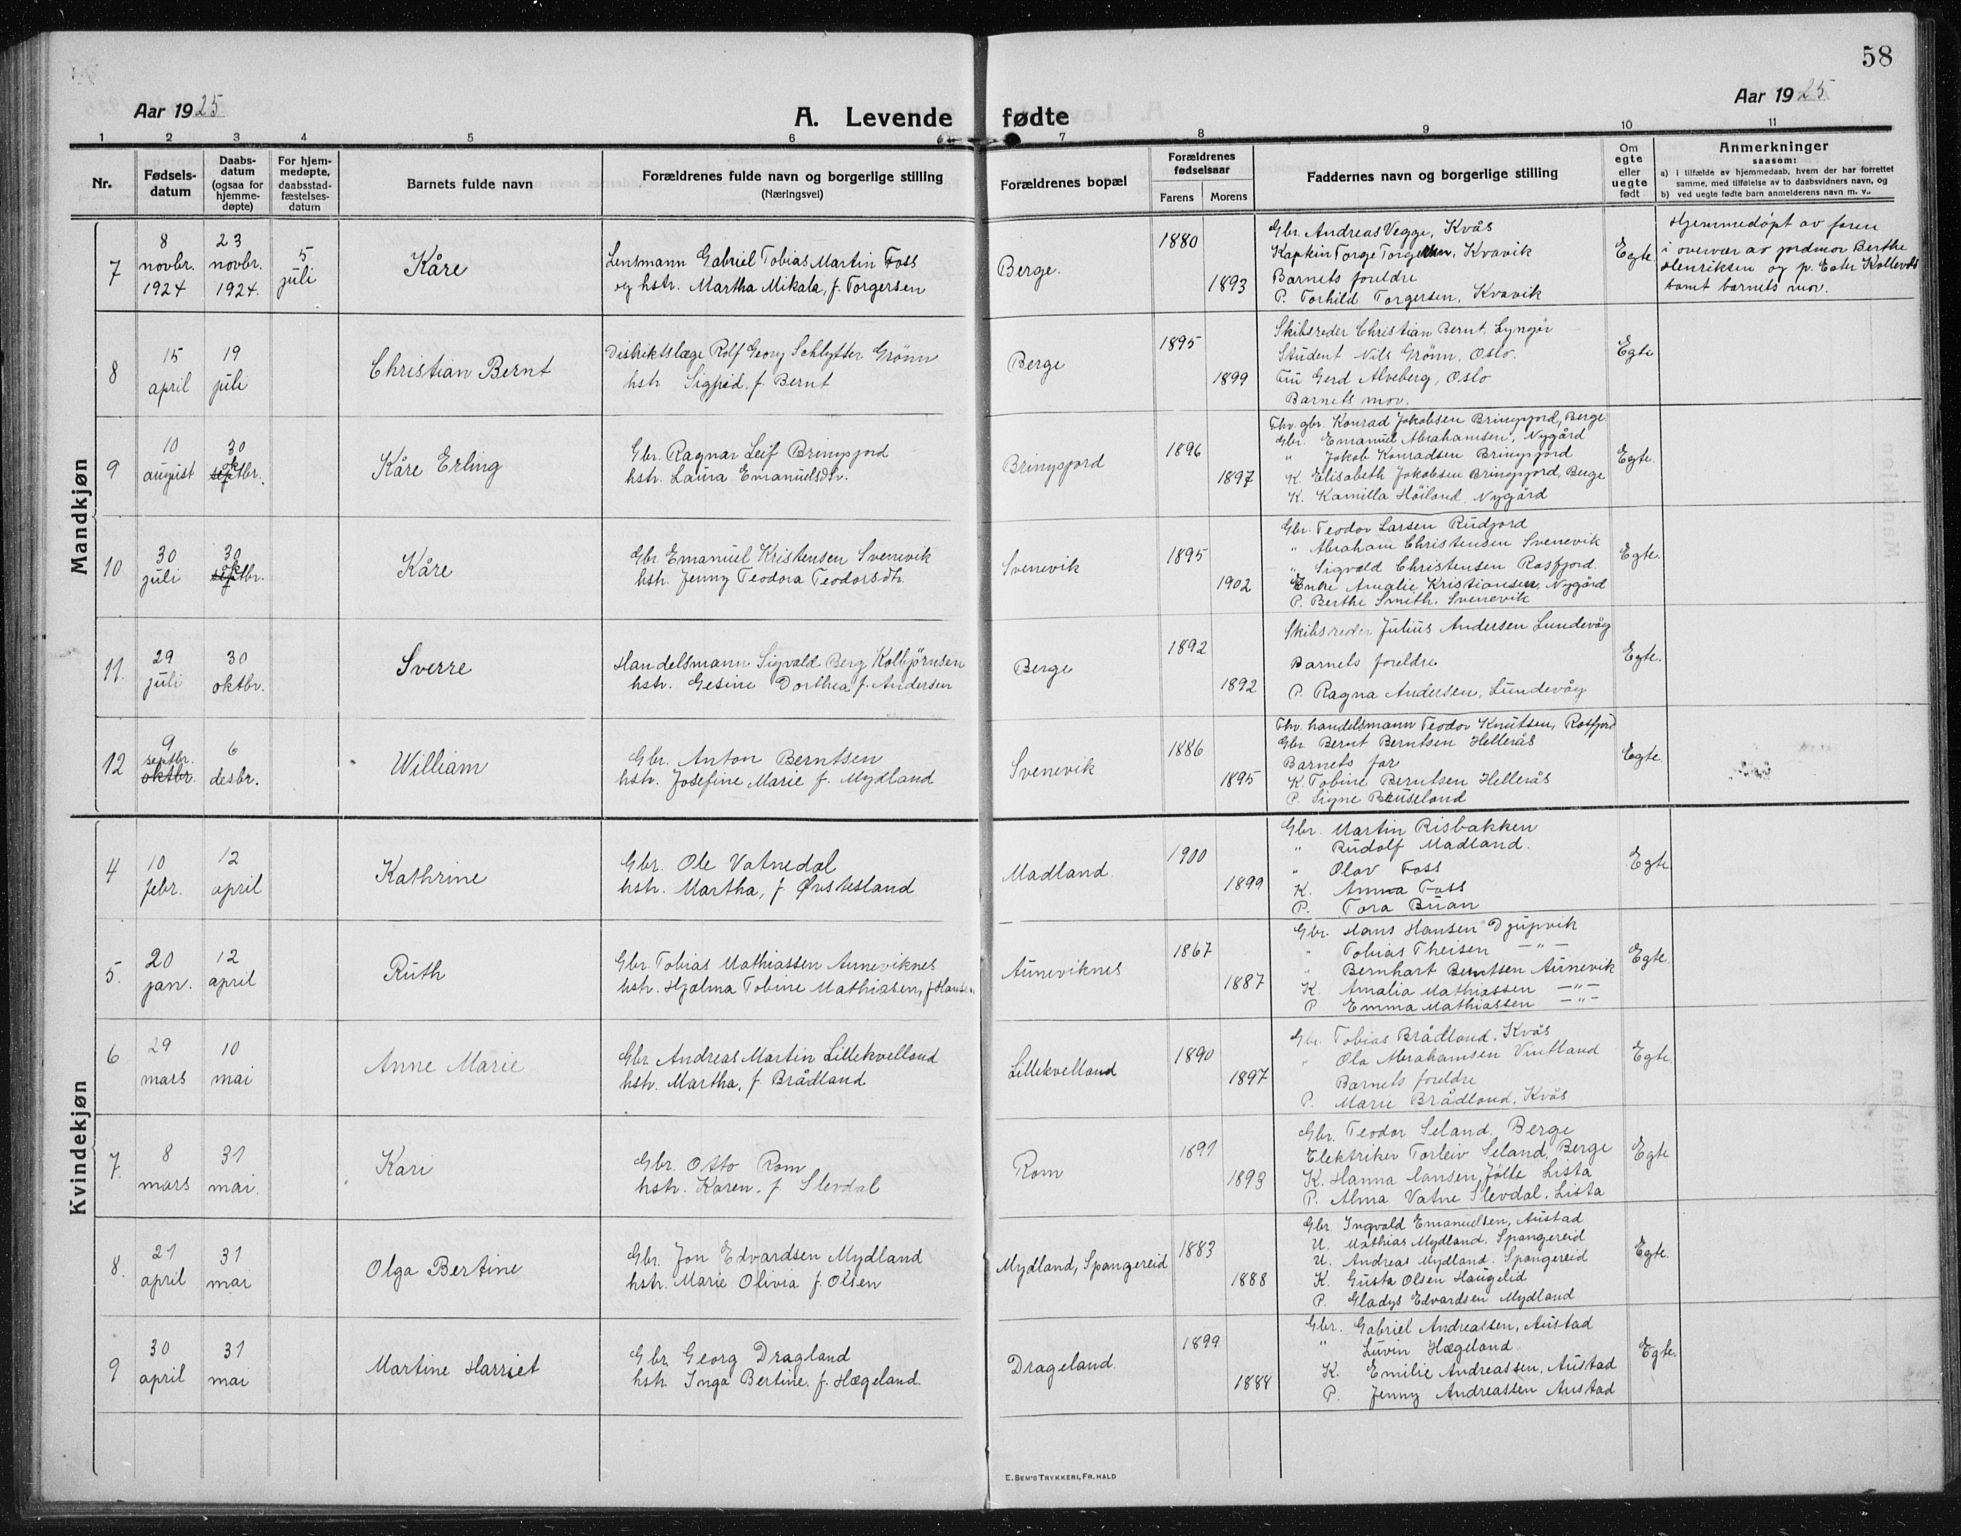 58
Aar 1925
A. Levende fødte
Aar 1925
1 2 3 4 5 6 7 8 9 10 11
Nr.
Fødsels-
datum
Daabs-
datum
(ogsaa for
hjemme-
døpte)
For hjem-
medøpte,
daabsstad-
fæstelses-
datum
Barnets fulde navn
Forældrenes fulde navn og borgerlige stilling
(Næringsvei)
Forældrenes bopæl
Forældrenes
fødselsaar
Farens Morens
Faddernes navn og borgerlige stilling
Om
egte
eller
uegte
født
Anmerkninger
saasom:
a) i tilfælde av hjemmedaab, hvem der har forrettet
samme, med tilføielse av to daabsvidners navn, og
b) ved uegte fødte barn anmelderens navn m. v..
Mandkjøn
7
8
novbr.
1924
23
novbr.
1924.
5
juli
Kåre
Lensmann Gabriel Tobias Martin Foss
og hstr. Martha Mikala, f. Torgersen
Berge.
1880
1893
Gbr. Andreas Vegge, Kvås
Kaptein Torge Torgersen, Kvavik
Barnets foreldre
P. Torhild Torgersen, Kvavik
Egte.
Hjemmedøpt av faren
i overvær av jordmor Berthe
Henriksen og p. Ester Kollevoll
samt barnets mor.
8
15
april
19
juli
Christian Bernt
Distriktslæge Rolf Georg Schlytter Grönn
hstr Sigfrid, f. Bernt
Berge
1895
1899
Skibsreder Christian Bernt, Lyngör
Student Nils Grönn, Oslo.
Fru Gerd Alveberg, Oslo
Barnets mor.
Egte
9
10
august
30
septbr. ok
Kåre Erling
Gbr. Ragnar Leif Bringsjord
hstr. Laura Emanuelsdtr.
Bringsjord
1896
1897
Fhv. gbr. Konrad Jakobsen Bringsjord, Berge
Gbr. Emanuel Abrahamsen, Nygård
" Jakob Konradsen Bringsjord
K. Elisabeth Jakobsen Bringsjord, Berge
K. Kamilla Höiland, Nygård
Egte.
10
30
juli
30
septbr. ok
Kåre
Gbr. Emanuel Kristensen Svenevik
hstr. Jenny Teodora Teodorsdtr.
Svenevik
1895
1902
Gbr. Teodor Larsen Rudjord
" Abraham Christensen Svenevik
" Sigvald Christensen Rosfjord.
Enke Amalie Kristiansen, Nygård
P. Berthe Smith. Svenevik
Egte.
11.
29
juli
30
oktbr.
Sverre
Handelsmann Sigvald Berg Kolbjørnsen
hstr. Gesine Dorthea f. Andersen
Berge
1892
1892
Skibsreder Julius Andersen Lundevåg
Barnets foreldre
P. Ragna Andersen, Lundevåg
Egte.
12
9
septbr.
oktbr.
6
desbr.
William
Gbr. Anton Berntsen
hstr. Josefine Marie f. Mydland
Svenevik
1886
1895
Fhv. handelsmann Teodor Knutsen, Rosfjord
Gbr Bernt Berntsen Hellerås
Barnets far
K. Tobine Berntsen Hellerås
P. Signe Buseland
Egte.
Kvindekjøn
4
10
febr.
12
april
Kathrine
Gbr. Ole Vatnedal
hstr. Martha, f Øvstesland
Madland.
1900
1899
Gbr. Martin Risbakken
" Rudolf Madland.
" Olav Foss
K. Anna Foss
P. Tora Buan
Egte
5.
20
jan.
12
april
Ruth
Gbr. Tobias Mathiassen Auneviknes
hstr. Hjalma Tobine Mathiasen, f Hansen
Auneviknes
1867
1887
Gbr. Hans Hansen Djupvik
" Tobias Theisen —"—
" Bernhart Berntsen Aunevik
K. Amalia Mathiassen —"—
P. Emma Mathiassen —"—
Egte.
6
29
mars
10
mai
Anne Marie
Gbr. Andreas Martin Lillekvelland
hstr. Martha, f Brådland
Lillekvelland
1890
1897
Gbr. Tobias Brådland, Kvås
" Ola Abrahamsen Vintland
Barnets foreldre
P. Marie Brådland, Kvås
Egte.
7.
8
mars
31
mai.
Kari
Gbr. Otto Rom
hstr. Karen. f Slevdal
Rom
1891
1893
Gbr. Teodor Seland, Berge
Elektriker Torleiv Seland, Berge
K. Hanna Hansen Jölle Lista
P. Alma Vatne Slevdal. Lista
Egte
8.
21
april
31
mai
Olga Bertine
Gbr. Jon Edvardsen Mydland
hstr. Marie Olivia f. Olsen
Mydland, Spangereid
1883
1888
Gbr. Ingvald Emanuelsen, Austad
U. Mathias Mydland. Spangereid
U. Andreas Mydland. Spangereid
K. Gusta Olsen Haugelid
P. Gladys Edvardsen Mydland
Egte.
9
30
april
31
mai
Martine Harriet
Gbr. Georg Dragland
hstr. Inga Bertine. f. Hægeland.
Drageland.
1899
1884
Gbr. Gabriel Andreassen, Austad
" Luvin Hægeland
K. Emilie Andreassen, Austad
P. Jenny Andreassen Austad
Egte.
E. SEM'S TRYKKERI, FR. HALD